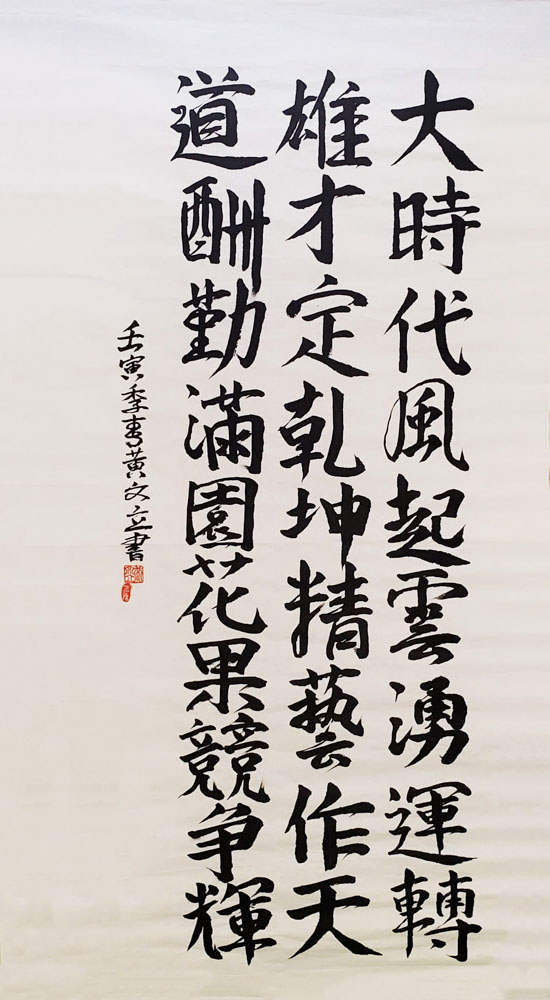 大時代風起雲湧運轉
雄才定乾坤精藝作天
道酬勤滿園花果競争輝
壬寅季春黃文立書